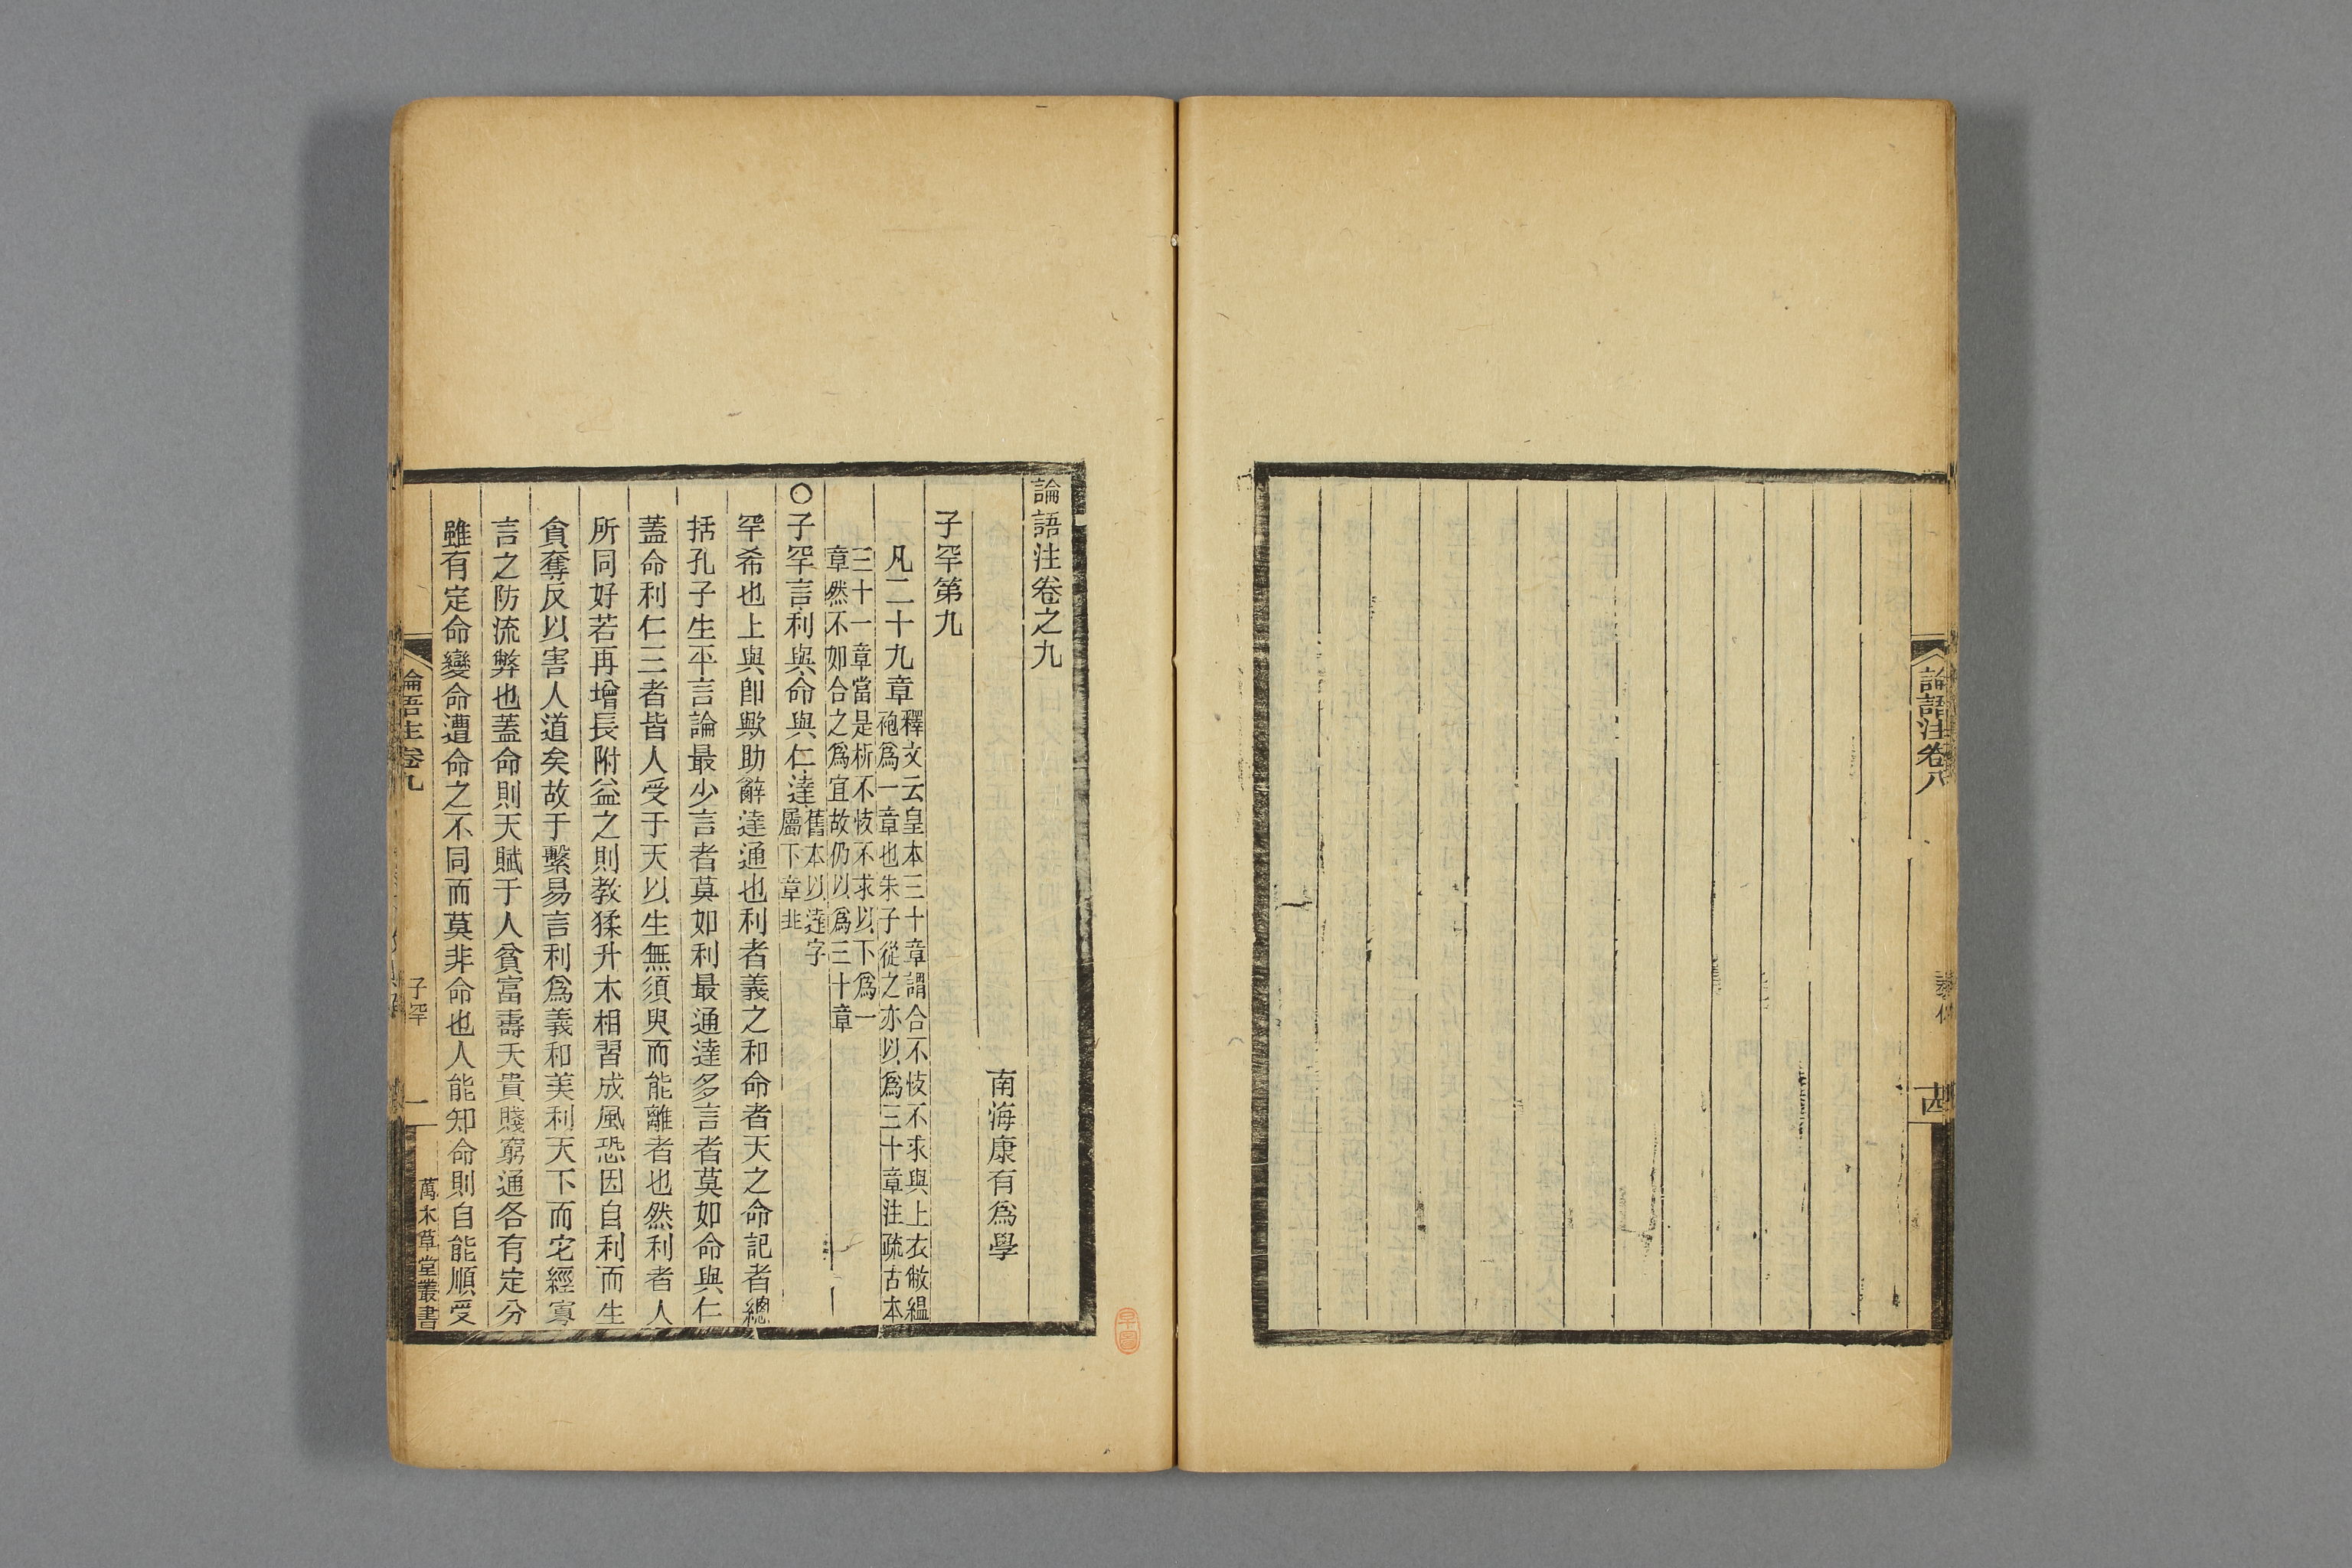 論語注卷八
泰伯
十四
論語注卷之九
南海康有爲學
子罕第九
凡二十九章釋文云皇本三十章謂合不忮不求與上衣敝縕
袍爲一章也朱子從之亦以爲三十章注疏古本
三十一章當是析不忮不求以下爲一
章然不如合之爲宜故仍以爲三十章
○子罕言利與命與仁達舊本以達字
屬下章非
罕希也上與卽歟助辭達通也利者義之和命者天之命記者總
括孔子生平言論最少言者莫如利最通達多言者莫如命與仁
蓋命利仁三者皆人受于天以生無須臾而能離者也然利者人
所同好若再增長附益之則教猱升木相習成風恐因自利而生
貪奪反以害人道矣故于繫易言利爲義和美利天下而它經寡
言之防流弊也蓋命則天賦于人貧富壽夭貴賤窮通各有定分
雖有定命變命遭命之不同而莫非命也人能知命則自能順受
論語注卷九
子罕
一
萬木草堂叢書